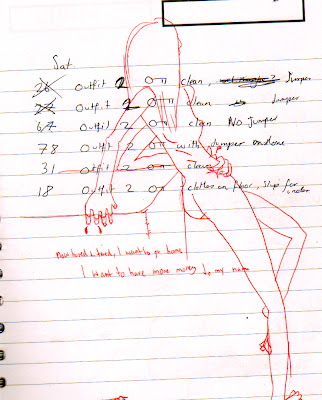 Sat
26 Outfit 2 on clean, Jumper
27 Outfit 2 on clean Jumper
67 Outfit 2 on clean No Jumper
78 Outfit 2 on with Jumper ondone
31 Outfit 2 on clean
18 Outfit 2 on clothes on floor, slip for
Now bored & tired, I want to go home
I want to have more money to my name